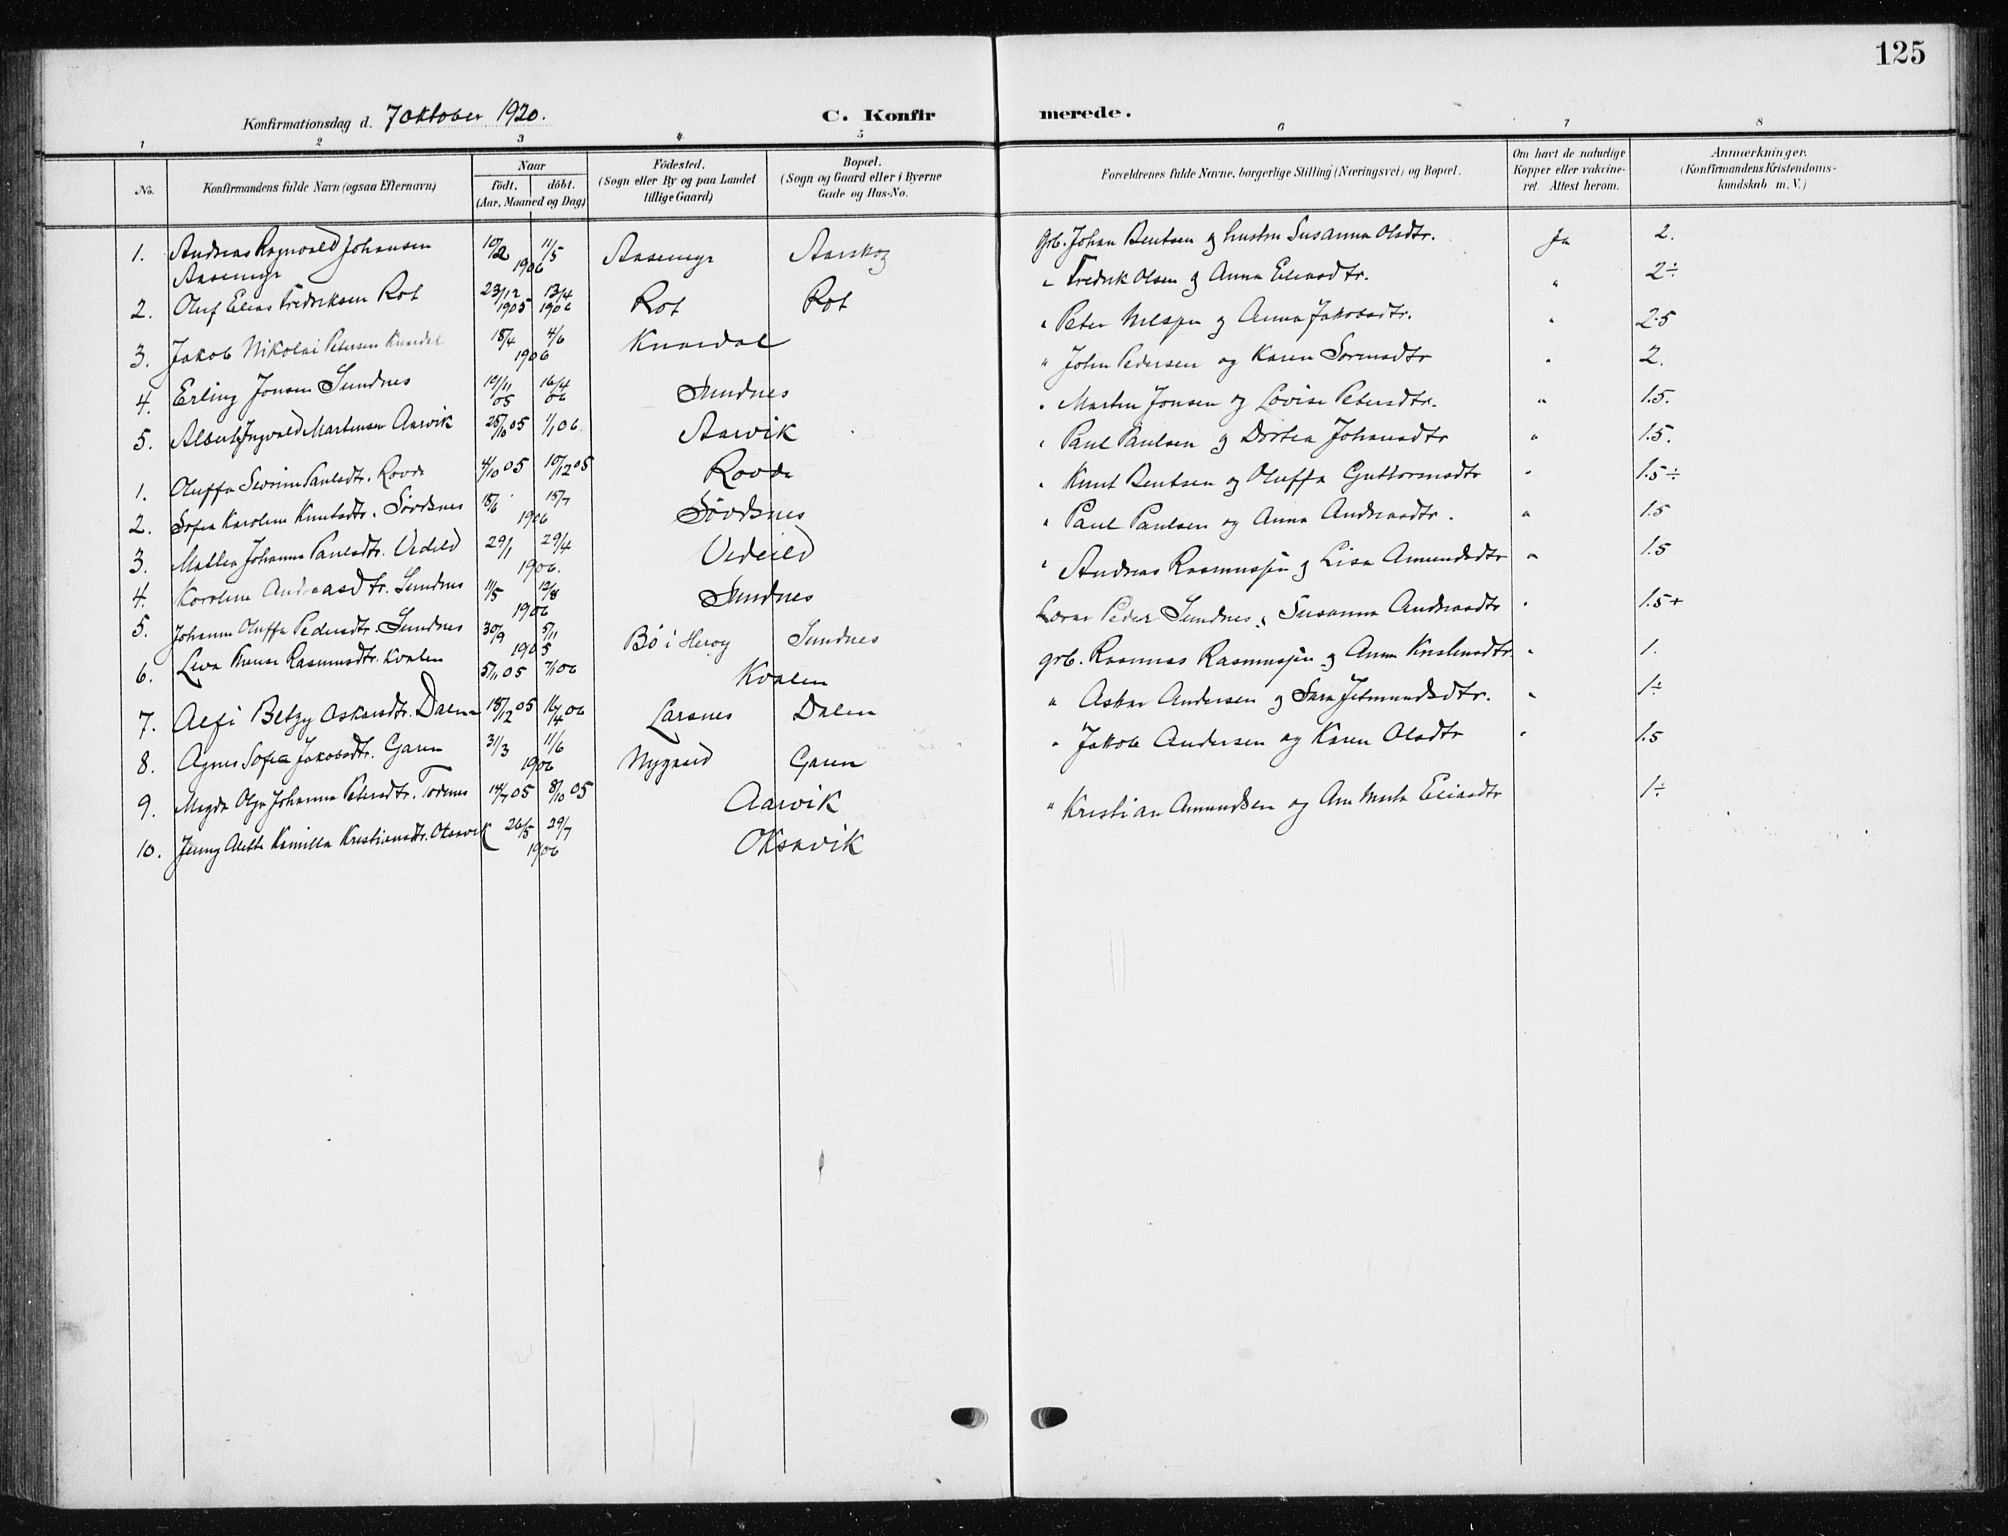 125
Konfirmationsdag d. 7 Oktober 1920.
C. Konfirmerede.
1 2 3 4 5 6 7 8
No.
Konfirmandens fulde Navn (ogsaa Efternavn)
Naar
födt. döbt.
(Aar, Maaned og Dag)
Födested.
(Sogn eller By og paa Landet
tillige Gaard)
Bopæl.
(Sogn og Gaard eller i Byerne
Gade og Hus-No.
Forældrenes fulde Navne, borgerlige Stilling (Næringsvei) og Bopæl.
Om havt de naturlige
Kopper eller vakcine-
ret. Attest herom.
Anmærkninger.
(Konfirmandens Kristendoms-
kundskab m. V.)
1. Andreas Ragnvald Johansen Aasemyr 10/2 11/5 1906 Aasemyr Aarskog Grb. Johan Bentsen og hustru Susanna Olsdtr. Ja 2.
2. Oluf Elias Fredriksen Rot 23/12 1905 13/4 1906 Rot Rot " Fredrik Olsen og Anna Eliasdtr. " 2÷
3. Jakob Nikolai Petersen Knardal 18/4 4/6 1906 Knardal " Peter Nilssen og Anna Jakobsdtr. " 2.5
4. Erling Jonsen Sundnes 10/11 05 16/4 06 Sundnes " John Pedersen og Karen " 2.
5. Albert Ingvald Martensen Aarvik 25/10 05 1/1 06. Aarvik " Martin Jonsen og Lovise Petersdtr. " 1.5.
1. Oluffa Severine Paulsdtr. Rovde 4/10 05 10/12 05 Rovde " Paul Paulsen og Dortea Johansdtr " 1.5.
2. Sofia Karoline Knutsdtr. Sövdsnes 15/6 15/7 1906 Sövdsnes " Knut Bentsen og Oluffa Guttormsdtr " 1.5÷
3. Mallea Johanna Paulsdtr. Vedeld 29/1 29/4 1906. Vedeld " Paul Paulsen og Anna Andreasdtr. " 1.5
4. Karoline Andreasdtr. Sundnes 11/5 12/8 1906 Sundnes " Andreas Rasmussen og Lisa Amundsdtr " 1.5
5. Johanne Oluffa Pedersdtr. Sundnes 30/9 5/11 1905 Bö i Heröy Sundnes Lærer Peder Sundnes, Susanna Andreasdtr " 1.5+
6. Rasmusdtr. Kvalen 5/11 05 7/1 06 Kvalen grb. Rasmus Rasmussen og Anna Kristensdtr. " 1.
7. Alfi Betzy Oskarsdtr. Dalen 18/12 05 16/4 06 Larsnes Dalen " Askar Andersen og Sara Jetmundsdtr. " 1÷
8. Agnes Sofie Jakobsdtr. Garen 31/3 11/6 1906 Nygaard Garen " Jakob Andersen og Karen Olsdtr " 1.5
9. Magda Olga Johanna Petersdtr. 14/7 05 8/10 05 Aarvik
10. Jenny Alette Kamilla Kristiansdtr. Oksavik 26/5 29/7 1906 Oksavik " Kristian Amundsen og Ane Marta Eliasdtr 1÷